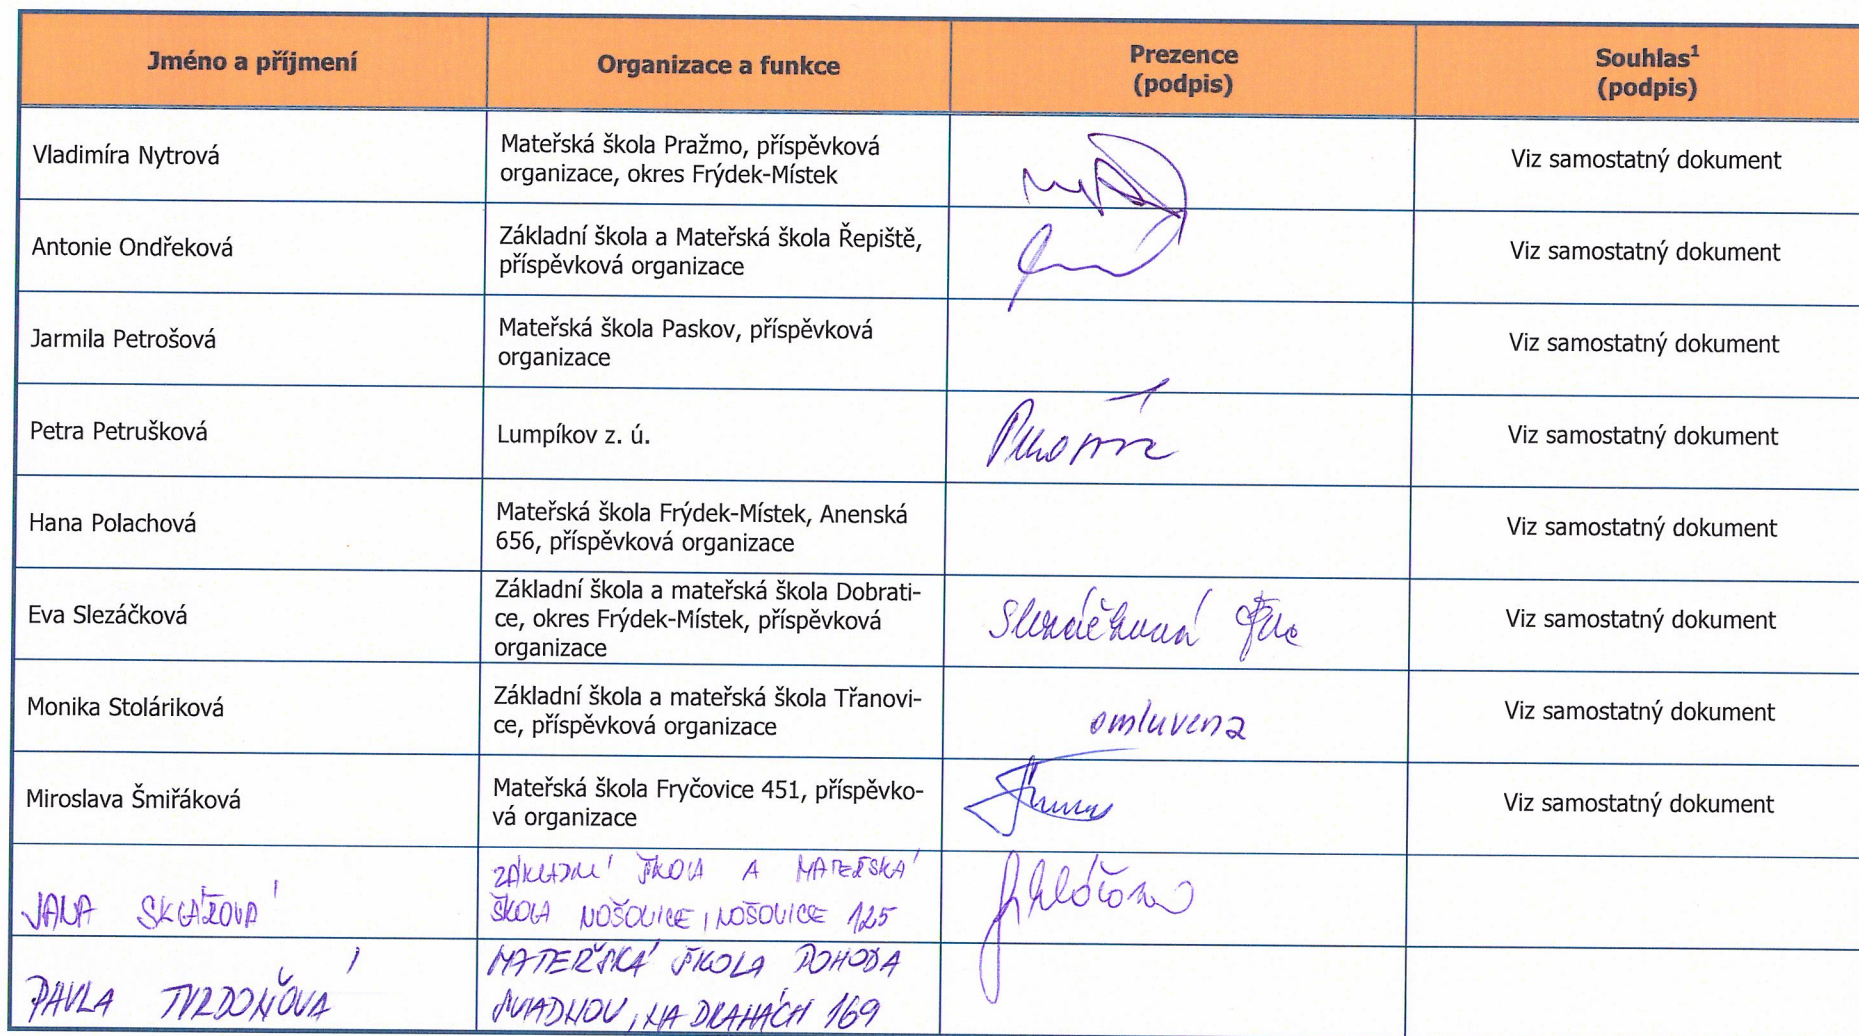 Jméno a příjmení
Organizace a funkce
Prezence
(podpis)
Souhlas¹
(podpis)
Vladimíra Nytrová
Mateřská škola Pražmo, příspěvková
organizace, okres Frýdek-Místek
Viz samostatný dokument
Antonie Ondřeková
Základní škola a Mateřská škola Řepiště,
příspěvková organizace
Viz samostatný dokument
Jarmila Petrošová
Mateřská škola Paskov, příspěvková
organizace
Viz samostatný dokument
Petra Petrušková
Lumpíkov z. ú.
Viz samostatný dokument
Hana Polachová
Mateřská škola Frýdek-Místek, Anenská
656, příspěvková organizace
Viz samostatný dokument
Eva Slezáčková
Základní škola a mateřská škola Dobrati-
ce, okres Frýdek-Místek, příspěvková
organizace
Slezáčková Eva
Viz samostatný dokument
Monika Stoláriková
Základní škola a mateřská škola Třanovi-
ce, příspěvková organizace
omluvena
Viz samostatný dokument
Miroslava Šmiřáková
Mateřská škola Fryčovice 451, příspěvko-
vá organizace
Viz samostatný dokument
JANA
ZÁKLADNÍ ŠKOLA A MATEŘSKÁ
ŠKOLA NOŠOVICE, NOŠOVICE 125
PAVLA TVRDOŇOVÁ
MATEŘSKÁ ŠKOLA POHODA
SVIADNOV, NA DRAHÁCH 169